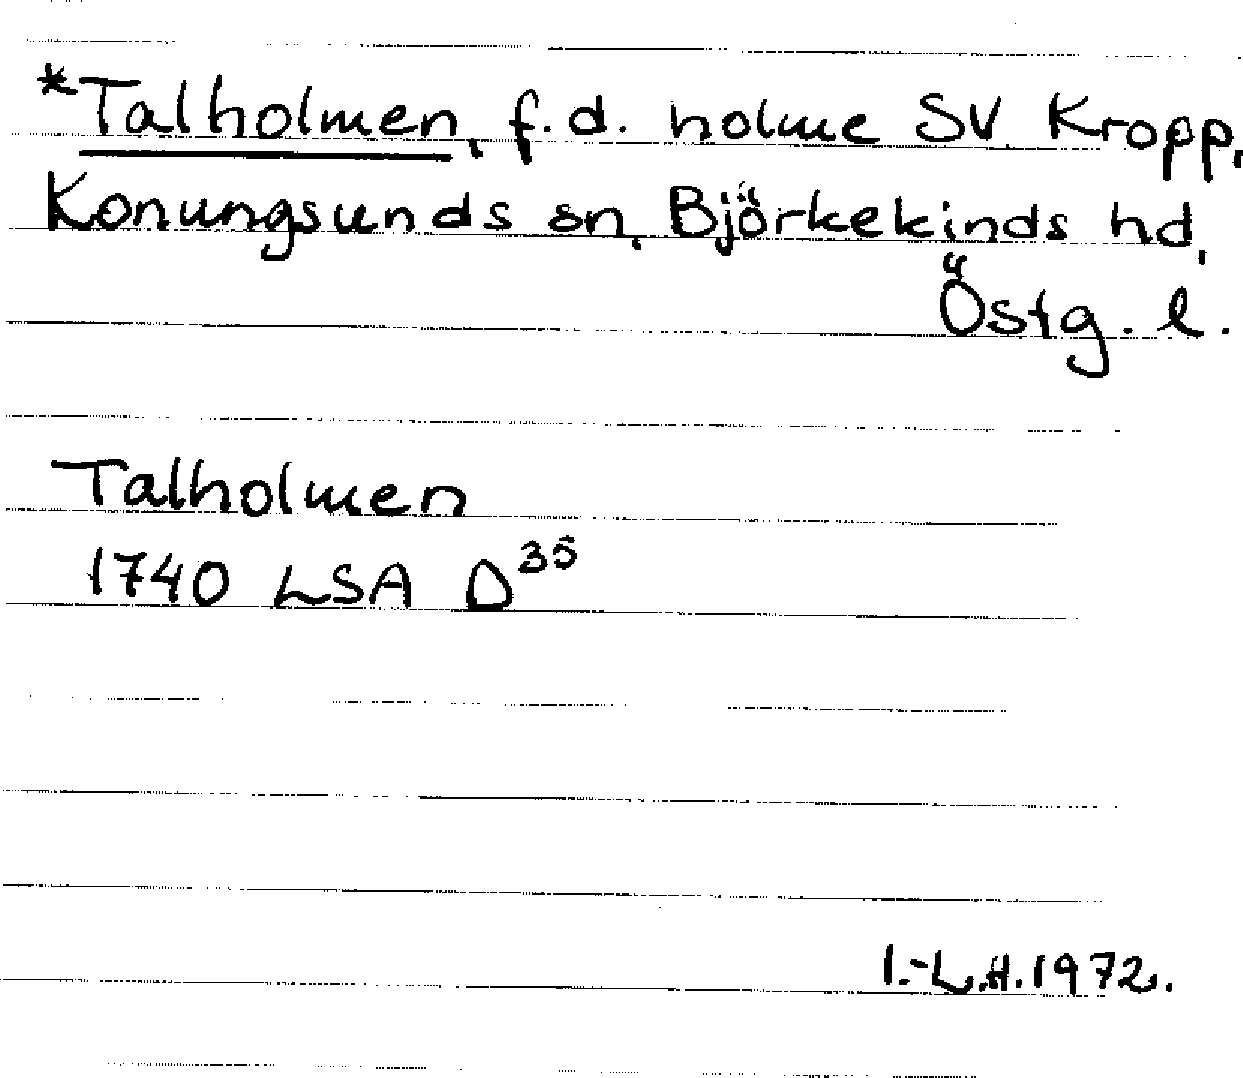 *Talholmen, f.d. holme SV Kropp,
Konungsunds sn, Björkekinds hd,
Östg. l.
Talholmen
1740 LSA D³⁵
I.-L.H.1972.